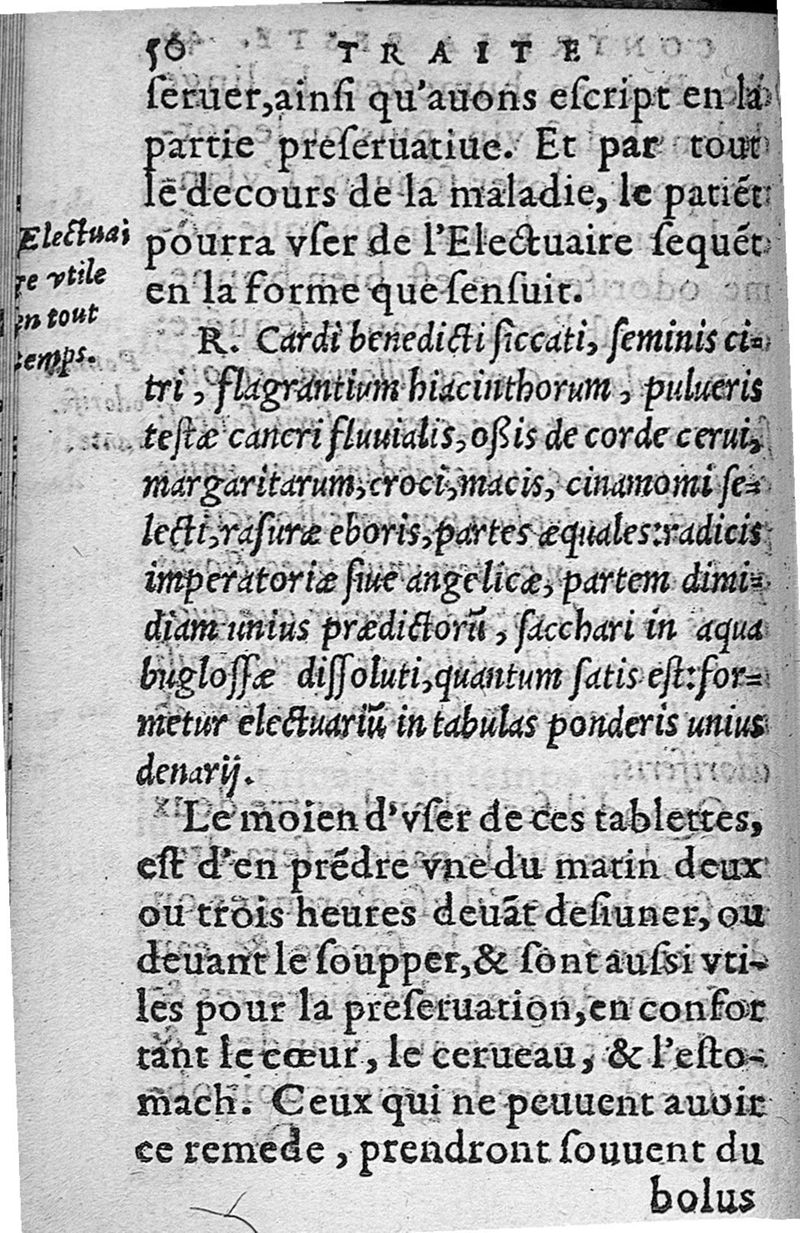 50 TRAITE
ſeruer,ainſi qu'auons eſcript en la
partie preſeruatiue. Et par tout
le decours de la maladie, le patiẽt
pourra vſer de l'Electuaire ſequẽt
en la forme que ſenſuit.
Electuai
re vtile
en tout
temps.
R. Cardi benedicti ſiccati, ſeminis ci=
tri, flagrantium hiacinthorum, pulueris
teſtæ cancri fluuialis, oßis de corde cerui,
margaritarum, croci, macis, cinamomi ſe=
lecti, raſuræ eboris, partes æquales: radicis
imperatoriæ ſiue angelicæ, partem dimi=
diam unius prædictorũ, ſacchari in aqua
bugloſſæ diſſoluti, quantum ſatis eſt: for=
metur electuariũ in tabulas ponderis unius
denarij.
Le moien d'vſer de ces tablettes,
eſt d'en prẽdre vne du matin deux
ou trois heures deuãt deſiuner, ou
deuant le ſoupper, & ſont auſsi vti-
les pour la preſeruation, en confor
tant le cœur, le cerueau, & l'eſto-
mach. Ceux qui ne peuuent auoir
ce remede, prendront ſouuent du
bolus